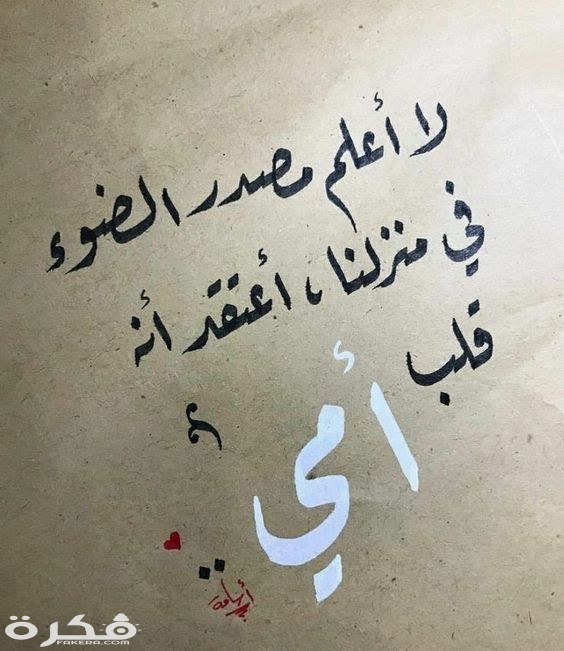 لا أعلم مصدر الضوء
في منزلنا، أعتقد أنه
قلب
أمي
..
أسامة
فكرة
FAKERA.COM